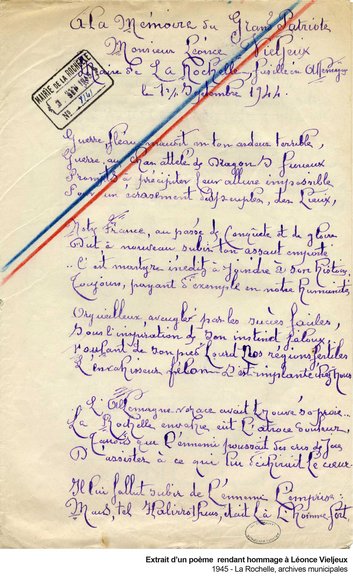 A la Mémoire du Grand Patriote
Monsieur Léonce Vieljeux
Maire de La Rochelle, fusillé en Allemagne
le 1er Septembre 1944.
MAIRIE DE LA ROCHELLE
No
Guerre, fléau maudit en ton ardeur terrible,
Guerre, au char attelé de dragons furieux
Prompts à précipiter leur allure impossible
écrasement des peuples, des lieux,
Notre France, au passé de conquête et de gloire
Dut à nouveau subir ton assaut empesté
C'est martyre inédit à joindre à son histoire,
Toujours, payant d'exemple en notre humanité.
Orgueilleux, aveuglé par les succès faciles,
Sous l'inspiration de son instinct jaloux
Foulant de son pied lourd nos régions fertiles
L'envahisseur félon s'est implanté chez nous
L'Allemagne vorace avait trouvé sa proie...
La Rochelle envahie eut l'atroce douleur
Tandis que l'ennemi poussait des cris de joie,
D'assister à ce qui lui déchirait le cœur.
Il lui fallut subir de l'ennemi l'emprise :
Mais, tel était là l'homme fort
Extrait d'un poème rendant hommage à Léonce Vieljeux
1945 - La Rochelle, archives municipales